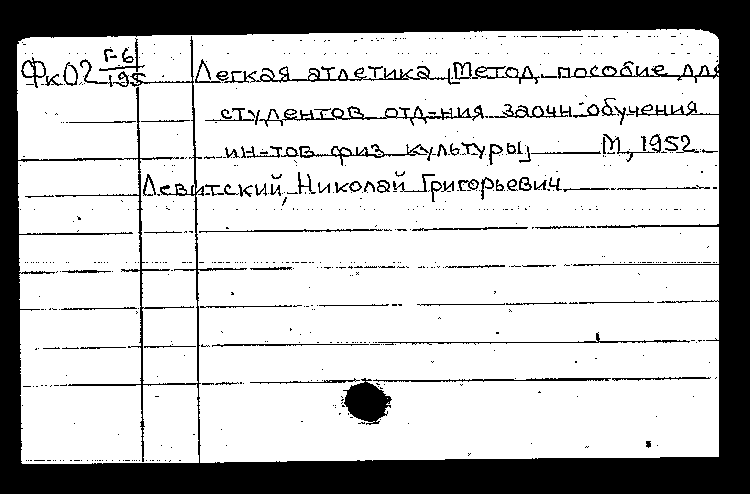 ФкО2 Г-6/195 Легкая атлетика [Метод. пособие для
студентов отд-ния заочн. обучения
ин-тов физ культуры] М, 1952
Левитский, Николай Григорьевич.